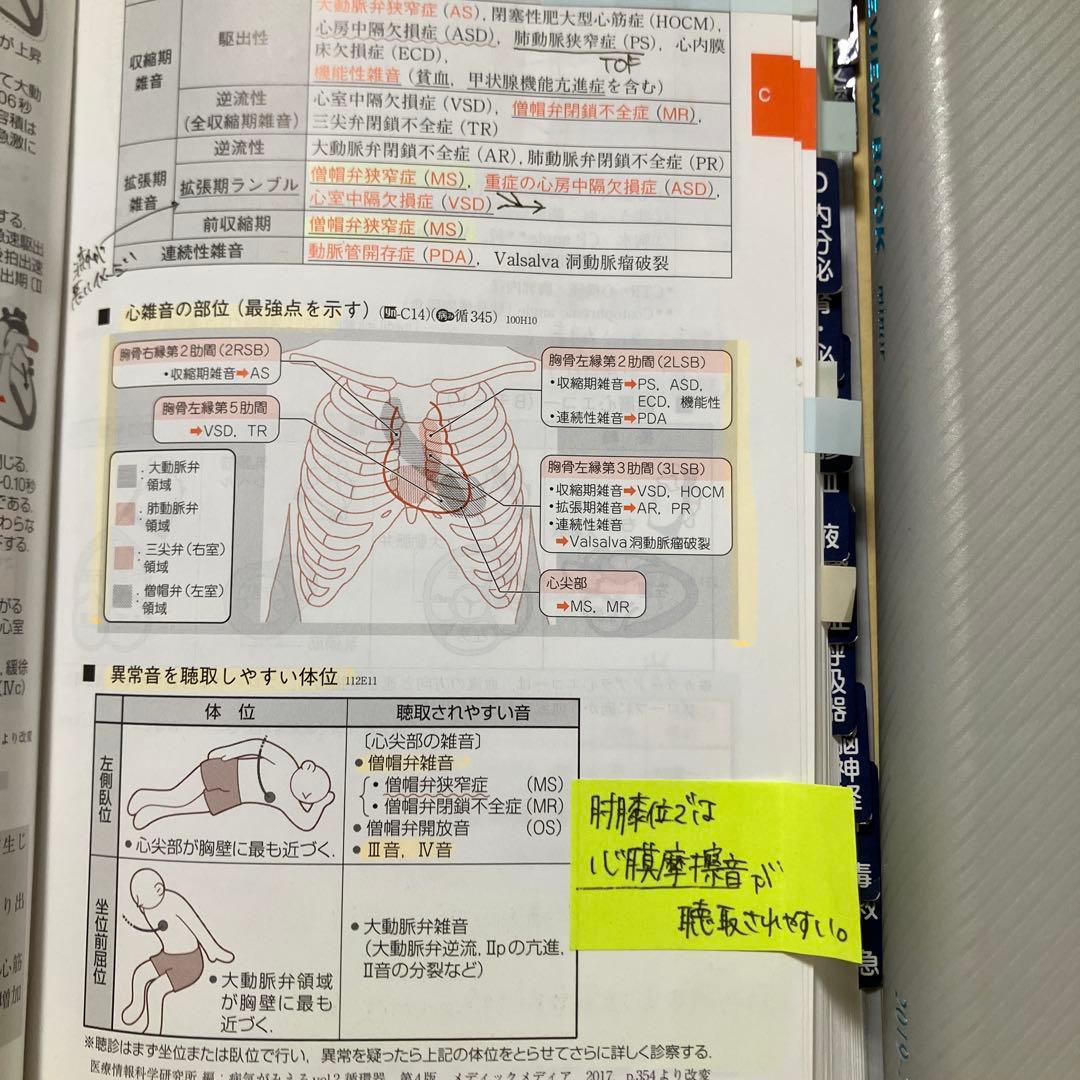 が上昇
て大動
06秒
容積は
急激に
する.
急速駆出
出期(Ⅱ
閉じる.
~0.10秒
である.
わらな
下する.
がる
心室
, 緩徐
(Ⅳc)
より改変
生じ
り出
心筋
増加
収縮期
雑音
駆出性
大動脈弁狭窄症(AS), 閉塞性肥大型心筋症(HOCM),
心房中隔欠損症(ASD), 肺動脈狭窄症(PS), 心内膜
床欠損症(ECD),
TOF
機能性雑音(貧血, 甲状腺機能亢進症を含む)
逆流性
(全収縮期雑音)
心室中隔欠損症(VSD), 僧帽弁閉鎖不全症(MR),
三尖弁閉鎖不全症(TR)
拡張期
雑音
逆流性
大動脈弁閉鎖不全症(AR), 肺動脈弁閉鎖不全症(PR)
拡張期ランブル
僧帽弁狭窄症(MS), 重症の心房中隔欠損症(ASD),
心室中隔欠損症(VSD)
前収縮期
僧帽弁狭窄症(MS)
連続性雑音
動脈管開存症(PDA), Valsalva洞動脈瘤破裂
■ 心雑音の部位(最強点を示す)(-C14)(循345) 100H10
胸骨右縁第2肋間(2RSB)
・収縮期雑音➡AS
胸骨左縁第5肋間
➡VSD, TR
胸骨左縁第2肋間(2LSB)
・収縮期雑音➡PS, ASD,
ECD, 機能性
・連続性雑音➡PDA
胸骨左縁第3肋間(3LSB)
・収縮期雑音➡VSD, HOCM
・拡張期雑音➡AR, PR
・連続性雑音
➡Valsalva洞動脈瘤破裂
心尖部
➡MS, MR
: 大動脈弁
領域
: 肺動脈弁
領域
: 三尖弁(右室)
領域
: 僧帽弁(左室)
領域
■ 異常音を聴取しやすい体位 112E11
体 位
聴取されやすい音
左側臥位
●心尖部が胸壁に最も近づく.
〔心尖部の雑音〕
●僧帽弁雑音
・僧帽弁狭窄症 (MS)
・僧帽弁閉鎖不全症(MR)
●僧帽弁開放音 (OS)
●Ⅲ音, Ⅳ音
坐位前屈位
●大動脈弁領域
が胸壁に最も
近づく.
●大動脈弁雑音
(大動脈弁逆流, Ⅱpの亢進,
Ⅱ音の分裂など)
肘膝位では
心膜摩擦音が
聴取されやすい。
※聴診はまず坐位または臥位で行い, 異常を疑ったら上記の体位をとらせてさらに詳しく診察する.
医療情報科学研究所 編:病気がみえるvol.2 循環器, 第4版, メディックメディア, 2017, p.354より改変
C
内分泌
液
呼吸器
脳神経
毒
救
急
REVIEW BOOK